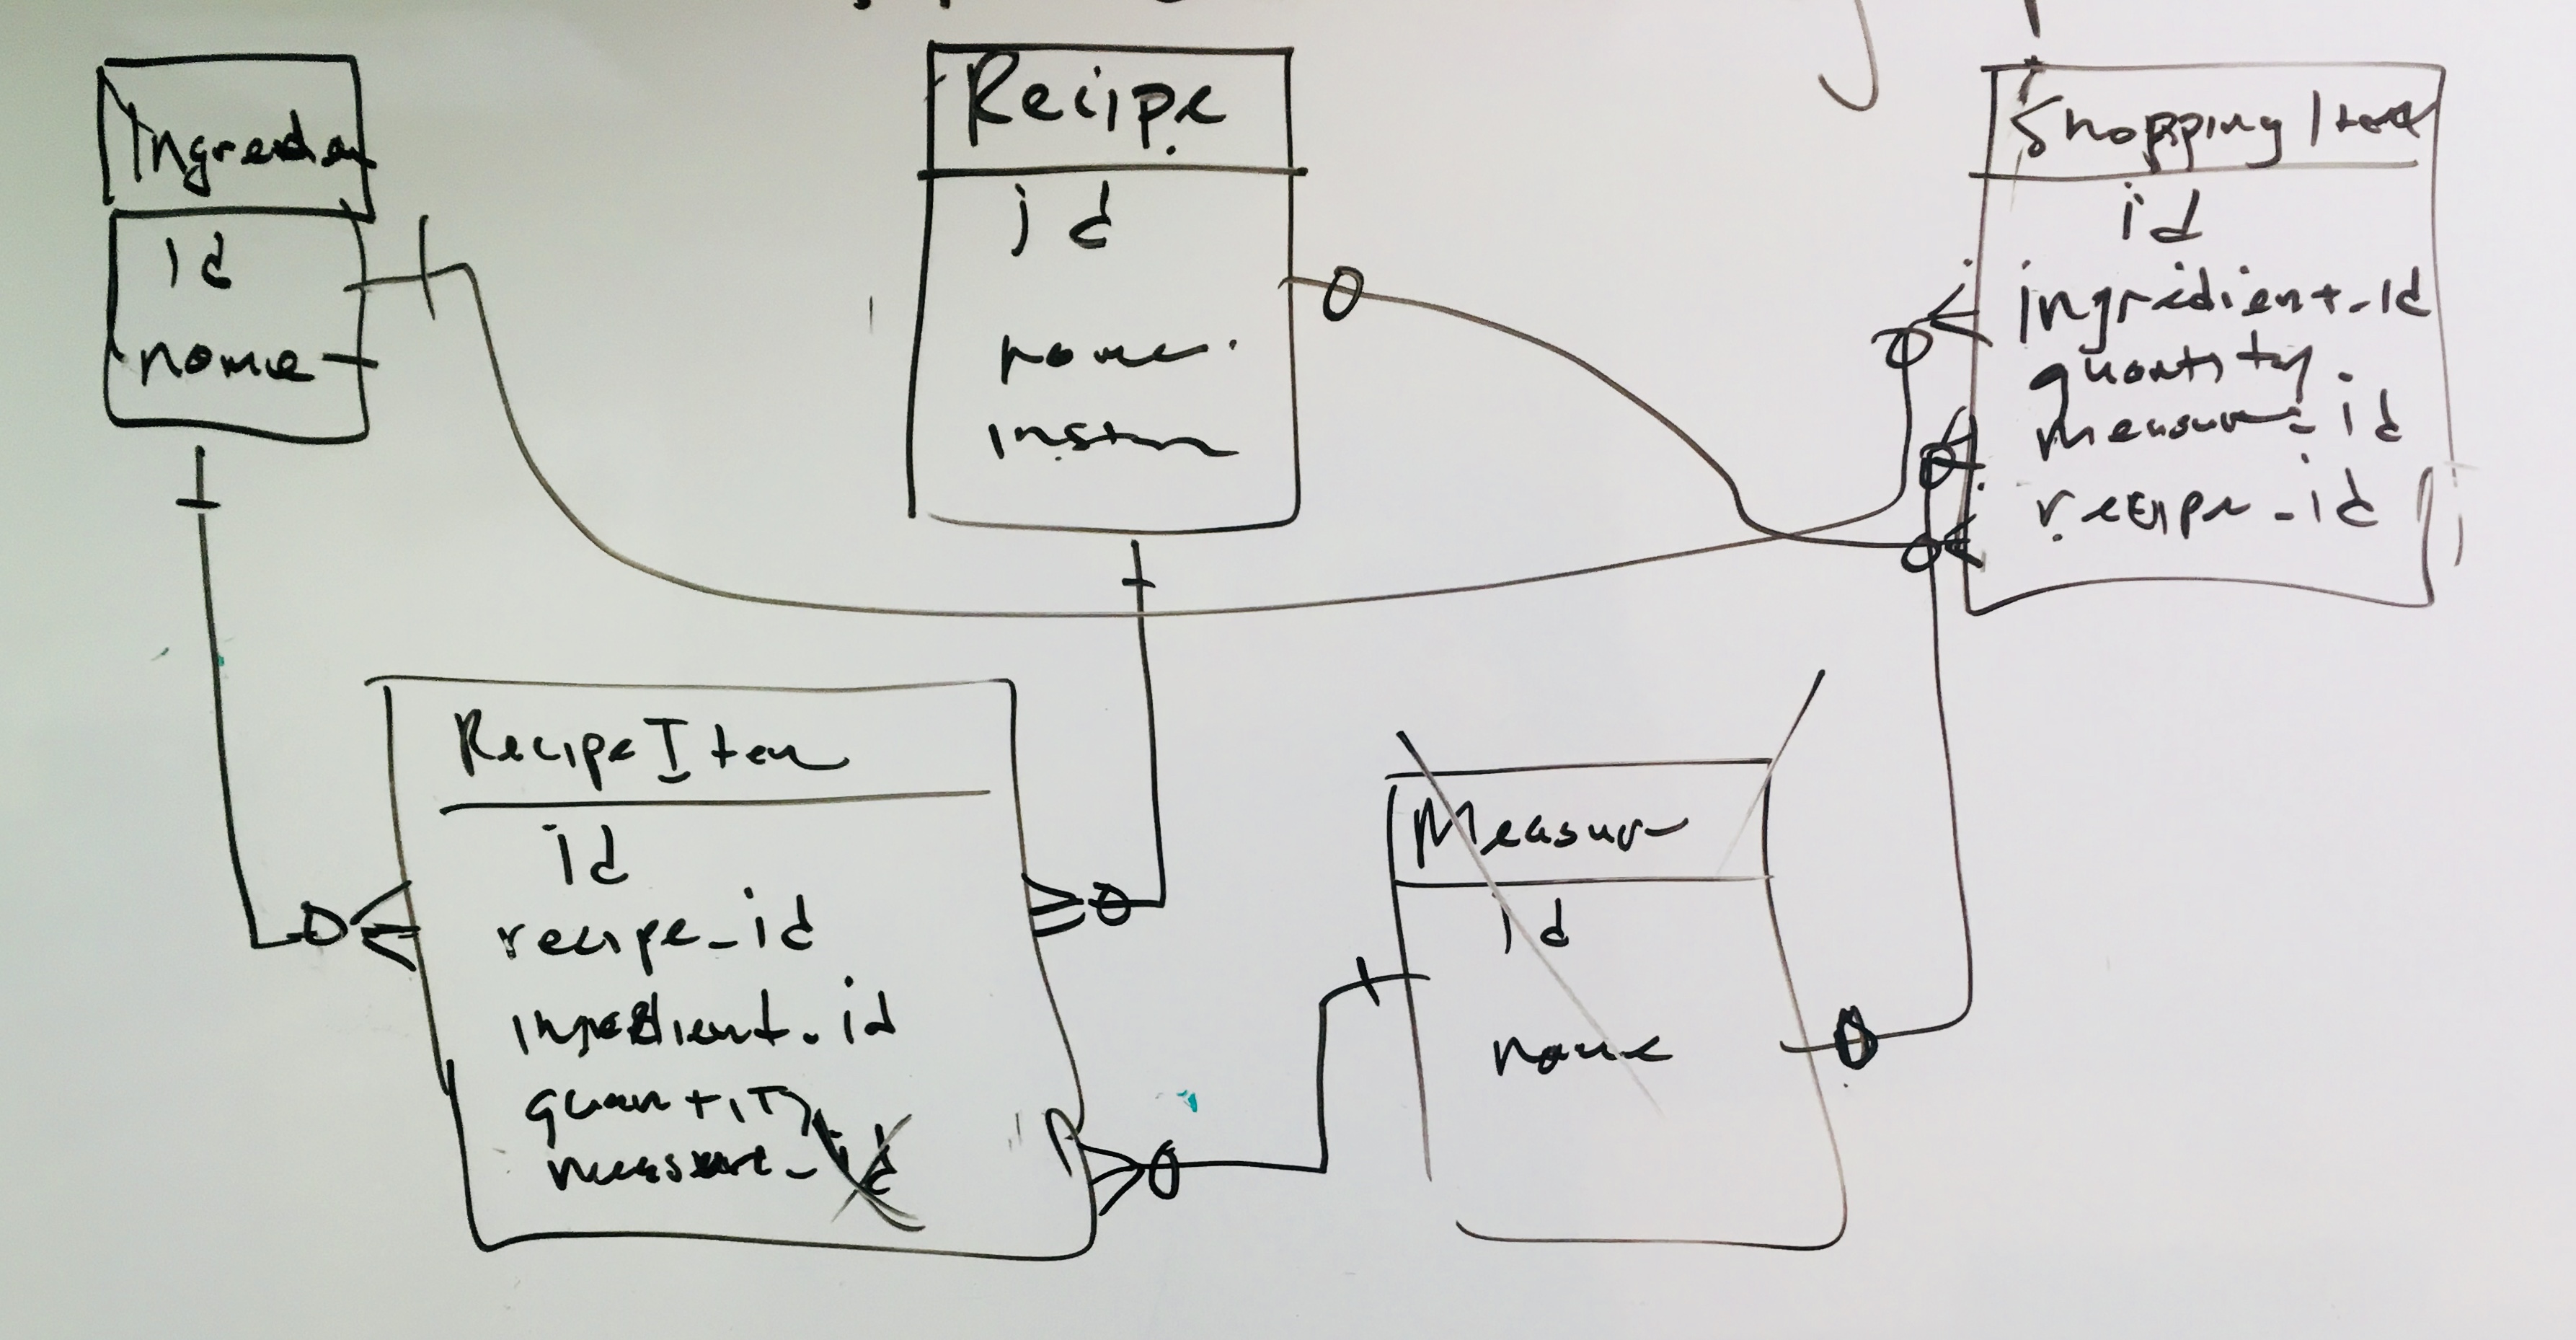 Ingredien
id
name
Recipe
id
name
instr
Shopping Item
id
ingredient_id
quantity
measure_id
recipe_id
RecipeItem
id
recipe_id
ingredient_id
quantity
measure_id
Measure
id
name